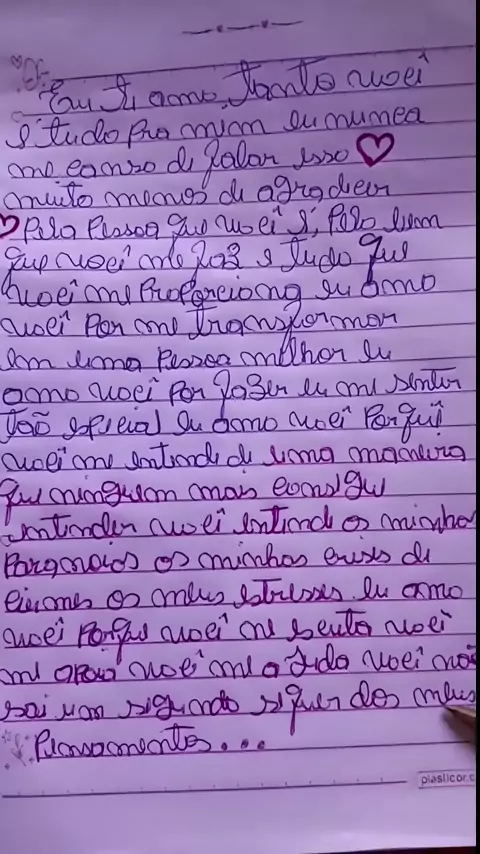 Eu ti amo, tanto você
é tudo pra mim eu nunca
me canso di falar isso
muito menos di agradecer
Pela Pessoa que você é, Pelo bem
que você me faz e tudo que
você me Proporciona eu amo
você Por me transformar
em uma Pessoa melhor eu
amo você Por fazer eu me sentir
tão especial eu amo você Porquê
você me entende di uma maneira
que ninguem mais consigui
entinder você entendi as minhas
Paranoias as minhas crises di
ciumes os meus estresses eu amo
você Porque você me escuta você
me apoia você me ajuda você não
sai um segundo sequer dos meus
Pensamentos...
plasticor.c